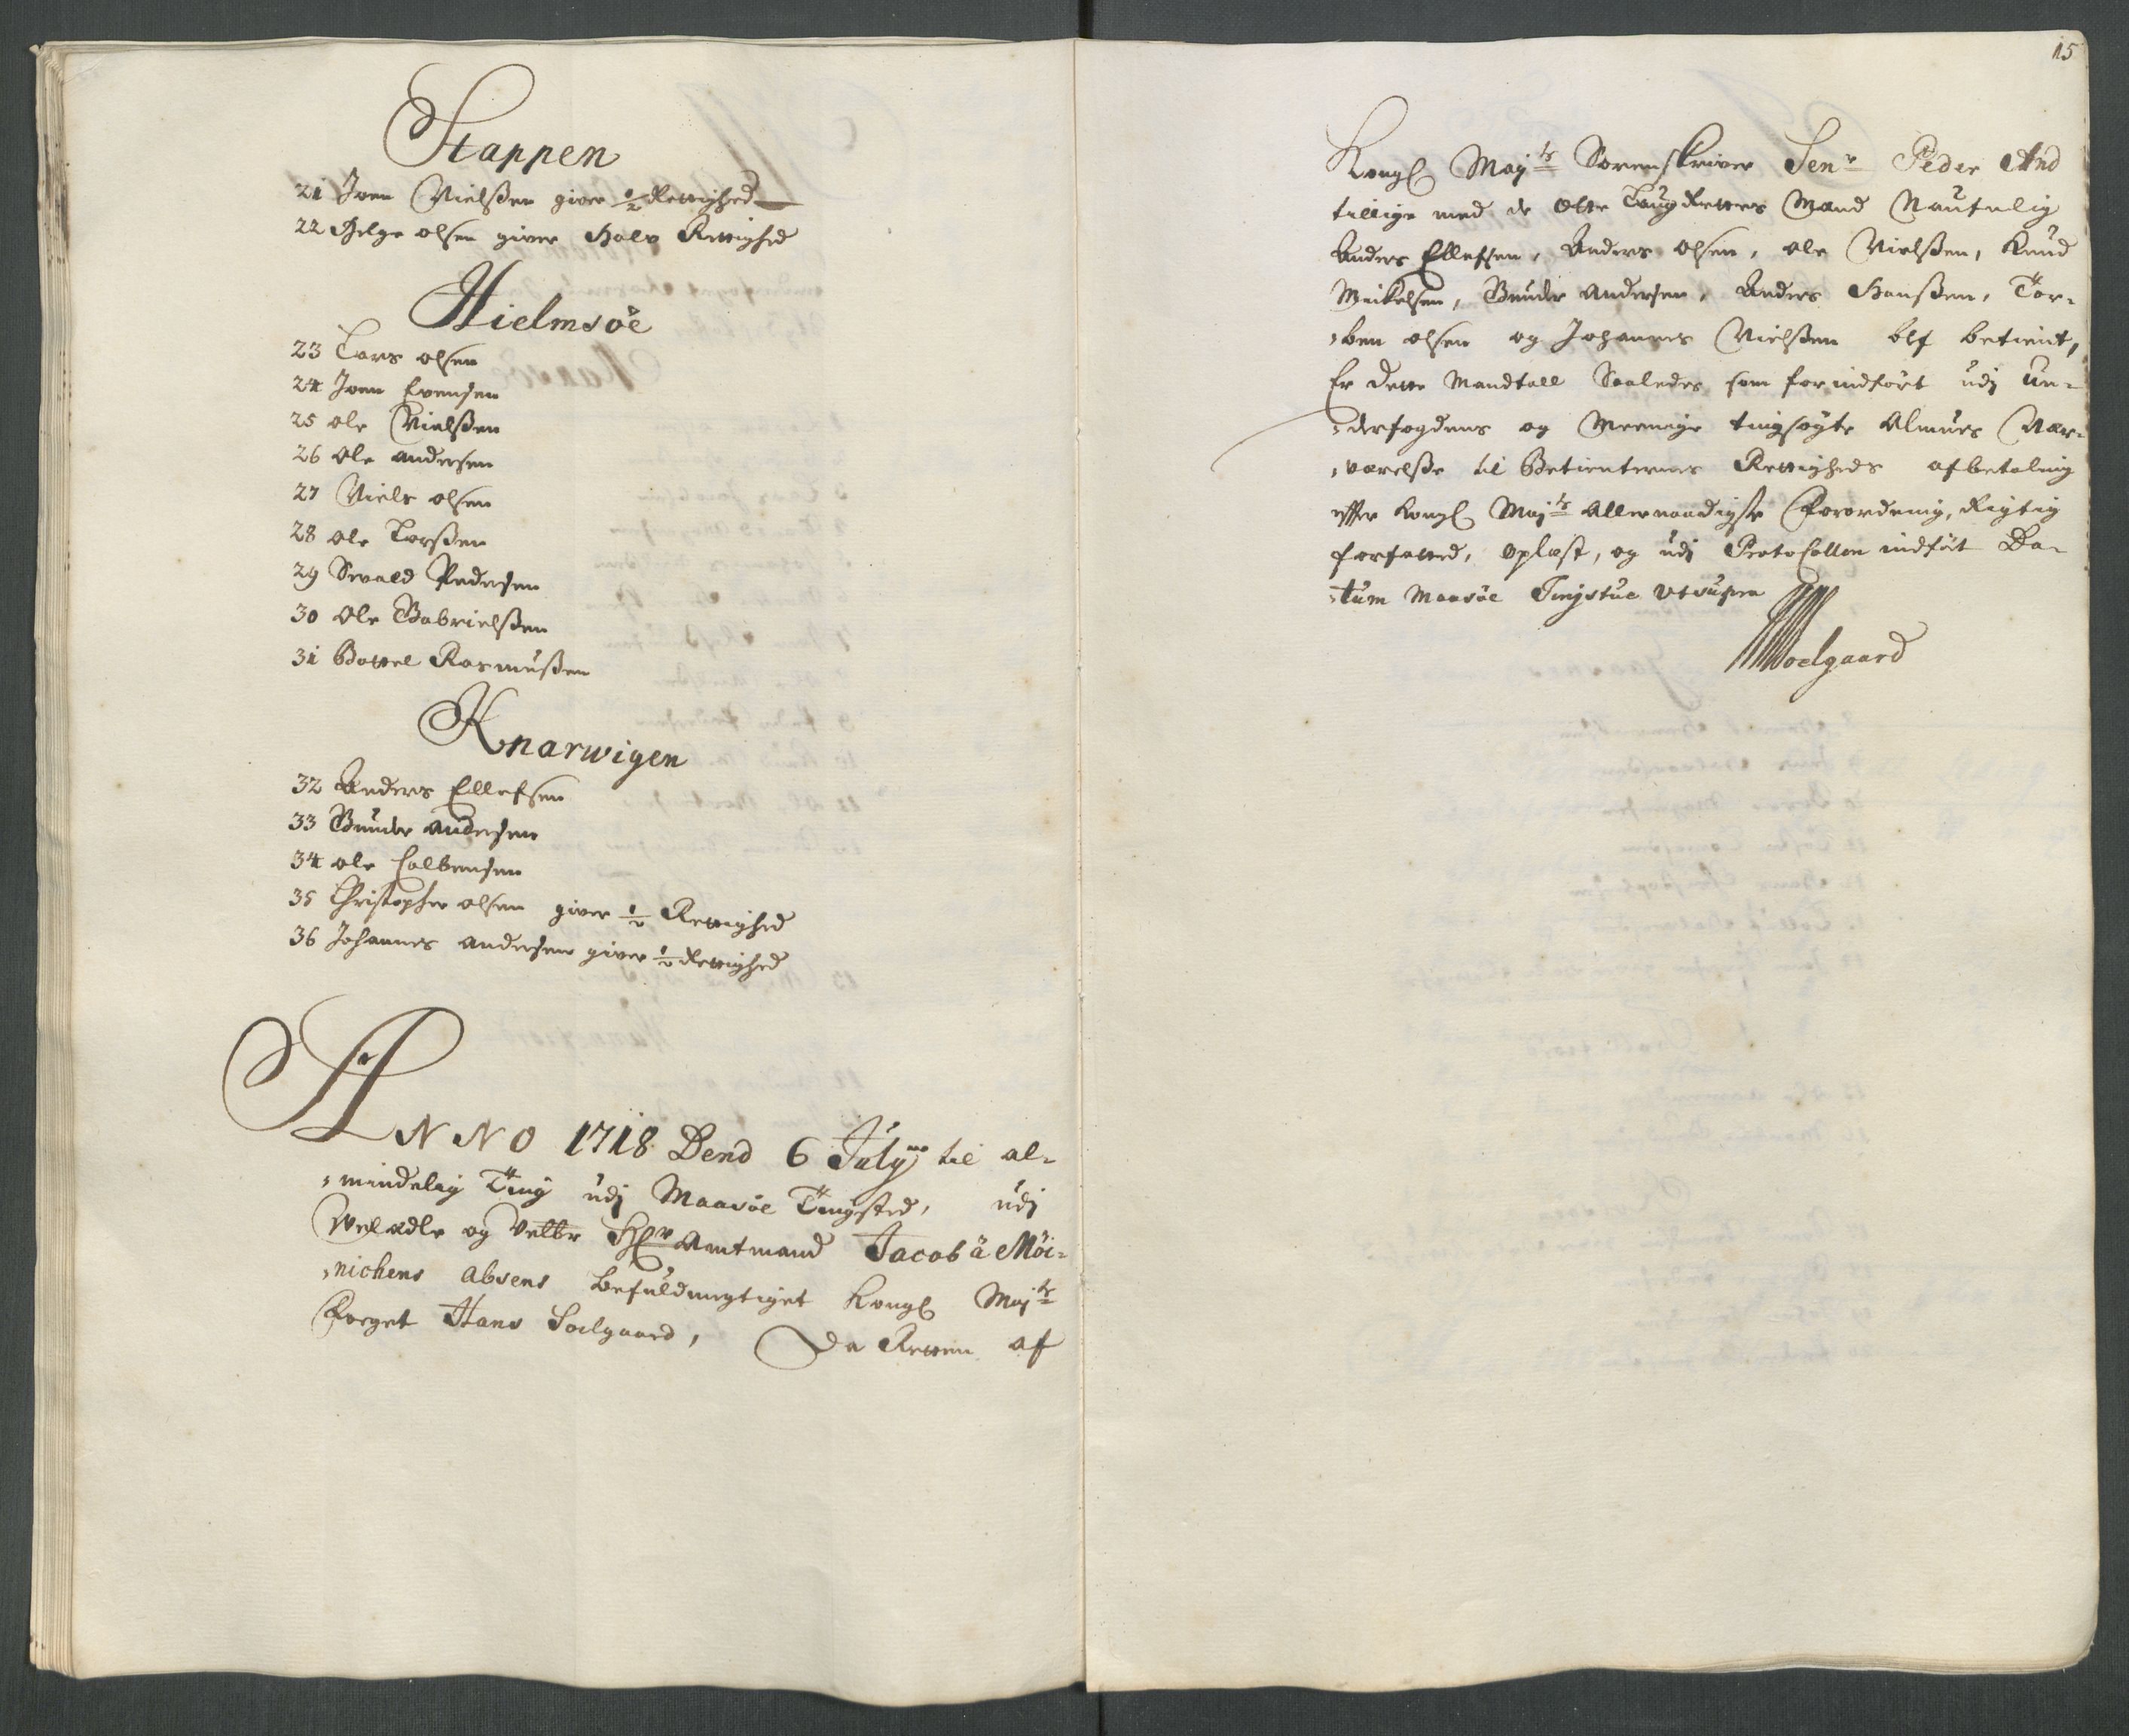 Stappen
21 Joen Nielßen giver 1/2 Rettighed
22 Helge olsen giver Halv Rettighed
Hielmsöe
23 Lars olsen
24 Joen Evensen
25 ole Nielßen
26 ole andersen
27 Niels olsen
28 ole Larßen
29 Sivald Pedersen
30 ole Gabrielßen
31 Bottel Rasmußen
Knarwigen
32 Anders Ellefsen
33 Gunder andersen
34 ole Colbensen
35 Christopher olsen giver 1/2 Rettighed
36 Johannes andersen giver 1/2 Rettighed
ANNO 1718 Dend 6 July til al-
mindelig Ting udj Maasöe Tingsted, udj
Welædle og Velbr Hr Amtmand Jacob â Möi-
nichens absens befuldmegtiget Kongl Majts
Foeget Hans Soelgaard, Da Retten af
15
Kongl Majts Sorenskriver Senr Peder And
tillige med de otte Laug Rettes Mænd Nafnlig
Anders Ellefsen, Anders olsen, ole Nielßen, Knud
Mickelsen, Gunder Andersen, Anders Hanßen, Tor-
ben olsen og Johannes Nielßen blef betient,
Er dette Mandtall Saaledes som forindfört udj Un-
derfogdens og Meenige tingsögte Almues Nær-
værelße til Betienternes Rettigheds afbetaling
effter Kongl Majts Allernaadigste Forordning, Rigtig
forfatted, oplæst, og udj Protocollen indfört Da-
tum Maasöe Tingstue Ut supra
Soelgaard